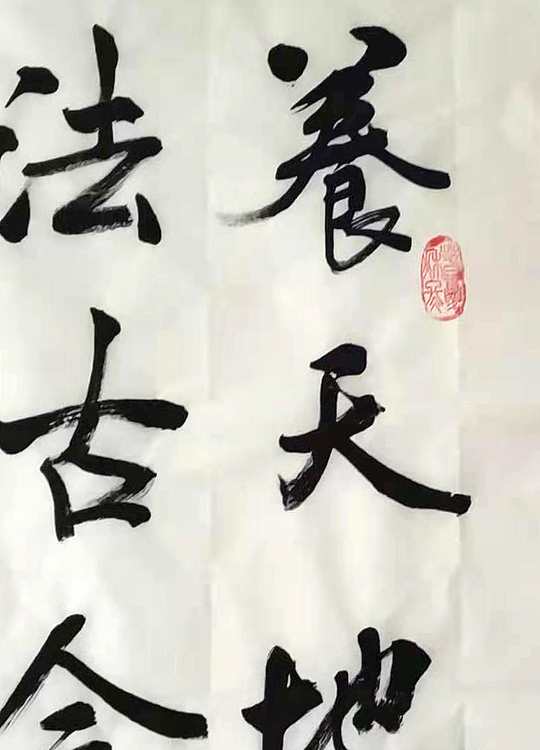 養天地
法古今